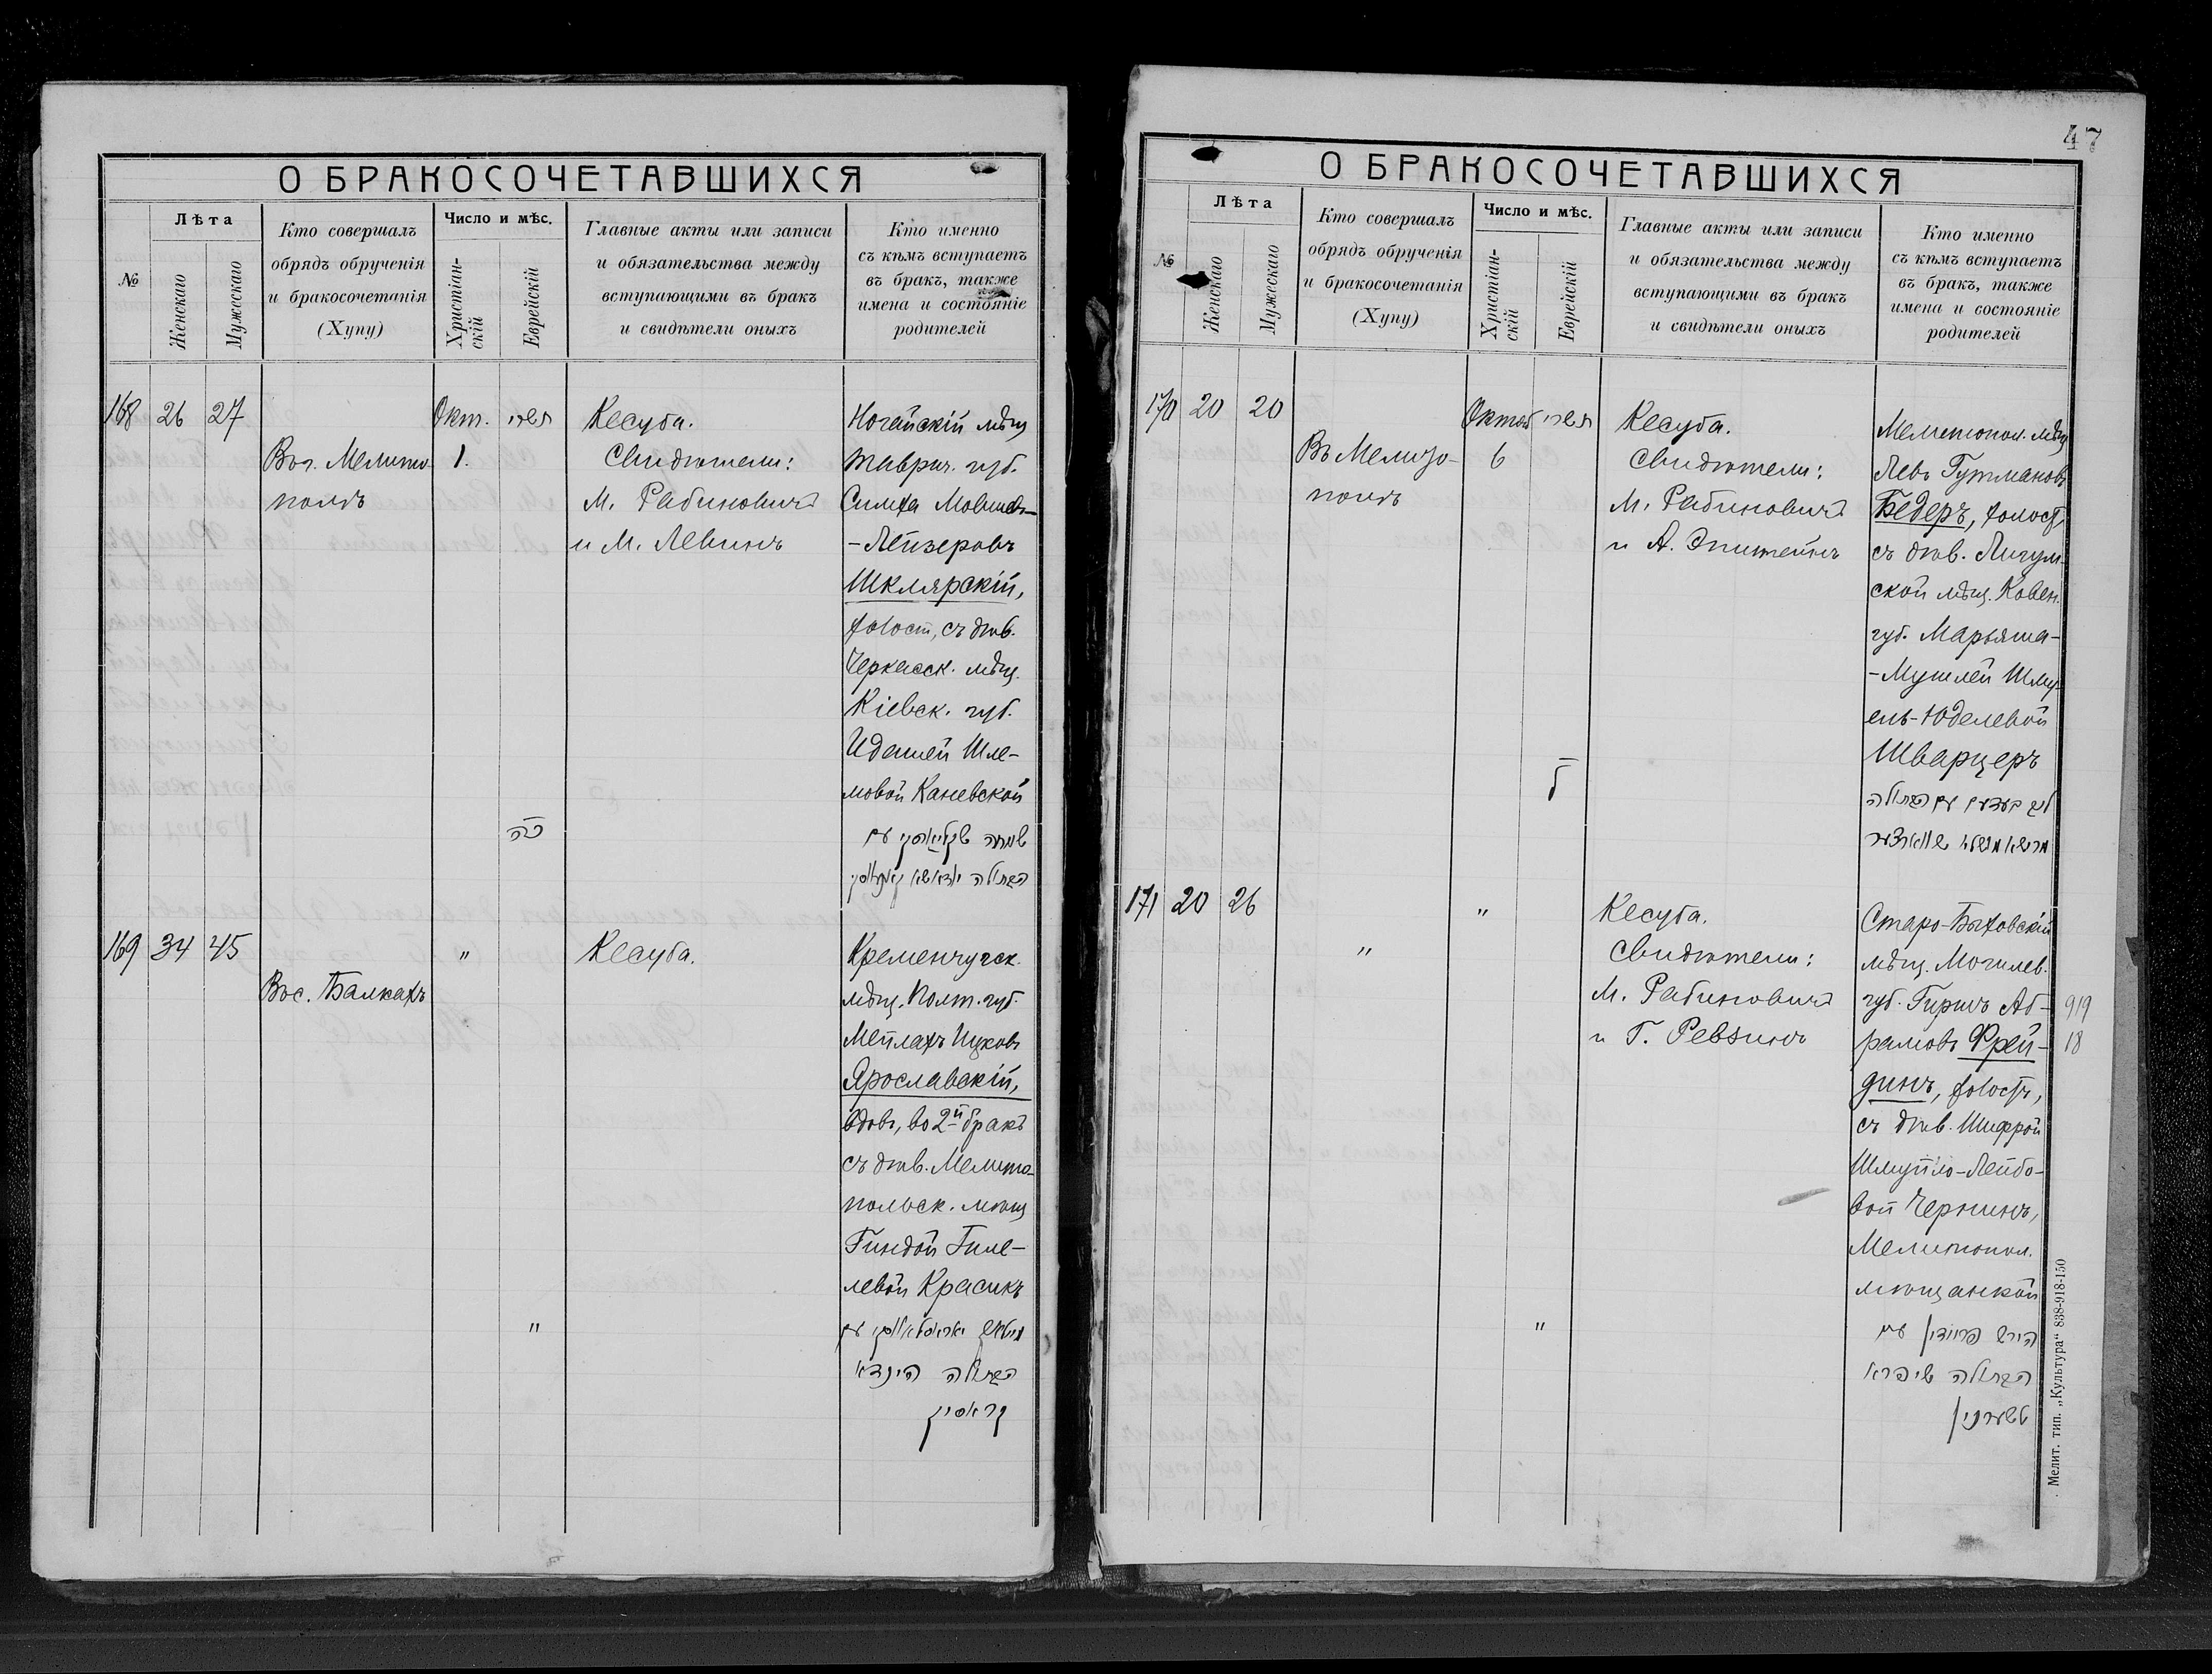 О БРАКОСОЧЕТАВШИХСЯ
№
Лѣта
Женскаго
Мужескаго
Кто совершалъ
обрядъ обрученія
и бракосочетанія
(Хупу)
Число и мѣс.
Христіан-
скій
Еврейскій
Главные акты или записи
и обязательства между
вступающими въ бракъ
и свидѣтели оныхъ
Кто именно
съ кѣмъ вступаетъ
въ бракъ, также
имена и состояніе
родителей
168 26 27
Въ г. Мелито-
полѣ
Окт.
1.
תשרי
כה
Кесуба.
Свидѣтели:
М. Рабиновичъ
и М. Левинъ
Ногайскій мѣщ.
Таврич. губ.
Симха Мовшев-
-Лейзеровъ
Шклярскій,
холост, съ дѣв.
Черкасск. мѣщ.
Кіевск. губ.
Идашей Шле-
мовой Каневской
שמחה שקליארסקי עם
הבתולה
169 34 45
Въ с. Балкахъ
"
"
Кесуба.
Кременчугск.
мѣщ. Полт. губ.
Мейлахъ Ицковъ
Ярославскій,
вдов., во 2й бракъ
съ дѣв. Мелито-
польск. мѣщ.
Гиндой Гиле-
левой Красикъ
עם
הבתולה הינדא
קראסיק
47
О БРАКОСОЧЕТАВШИХСЯ
№
Лѣта
Женскаго
Мужескаго
Кто совершалъ
обрядъ обрученія
и бракосочетанія
(Хупу)
Число и мѣс.
Христіан-
скій
Еврейскій
Главные акты или записи
и обязательства между
вступающими въ бракъ
и свидѣтели оныхъ
Кто именно
съ кѣмъ вступаетъ
въ бракъ, также
имена и состояніе
родителей
170 20 20
Въ Мелито-
полѣ
Октяб
6
תשרי
ל
Кесуба.
Свидѣтели:
М. Рабиновичъ
и А. Эпштейнъ
Мелитопол. мѣщ
Левъ Гутмановъ
Бедеръ, холост,
съ дѣв. Лигум-
ской мѣщ. Ковен.
губ. Марьяша-
-Мушлей Шму-
ель-Юделевой
Шварцеръ
עם הבתולה
171 20 26
"
"
"
Кесуба.
Свидѣтели:
М. Рабиновичъ
и Г. Ревзинъ
Старо-Быховскій
мѣщ. Могилев.
губ. Гиршъ Аб-
рамовъ Фрей-
динъ, холостъ,
съ дѣв. Шифрой
Шмуйло-Лейбо-
вой Чернинъ,
Мелитопол.
мѣщанкой
הירש פריידין עם
הבתולה שיפרא
טשערנין
919
18
Мелит. тип. „Культура“ 838-918-150